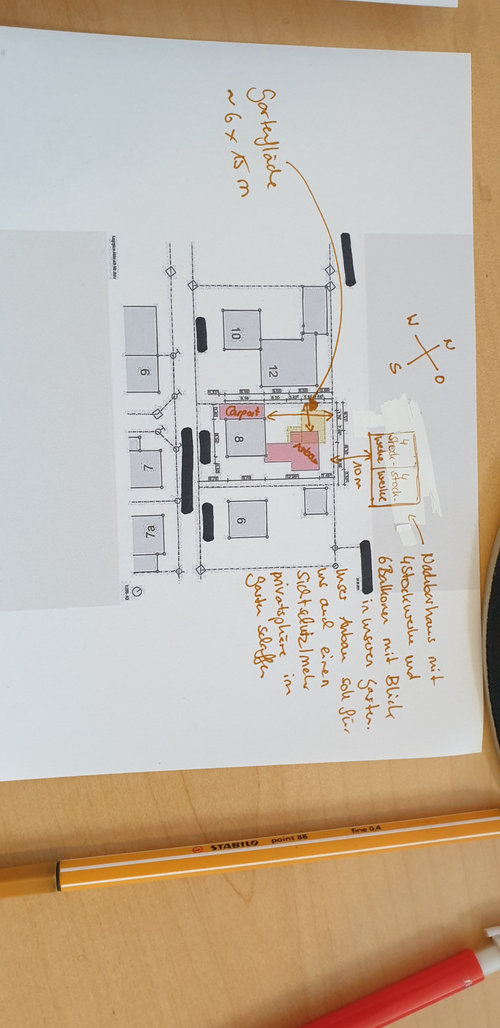 Gartenfläche
~ 6 x 15 m
N
O
S
W
10
12
9
Carport
8
Anbau
10 m
4
Stock-
werke
4
stock
werke
7
6
7a
Nachbarhaus mit
4 Stockwerke und
6 Balkonen mit Blick
in unseren Garten.
Unser Anbau soll für
uns auch einen
Sichtschutz/mehr
privatsphäre im
Garten schaffen
STABILO point 88 fine 0,4